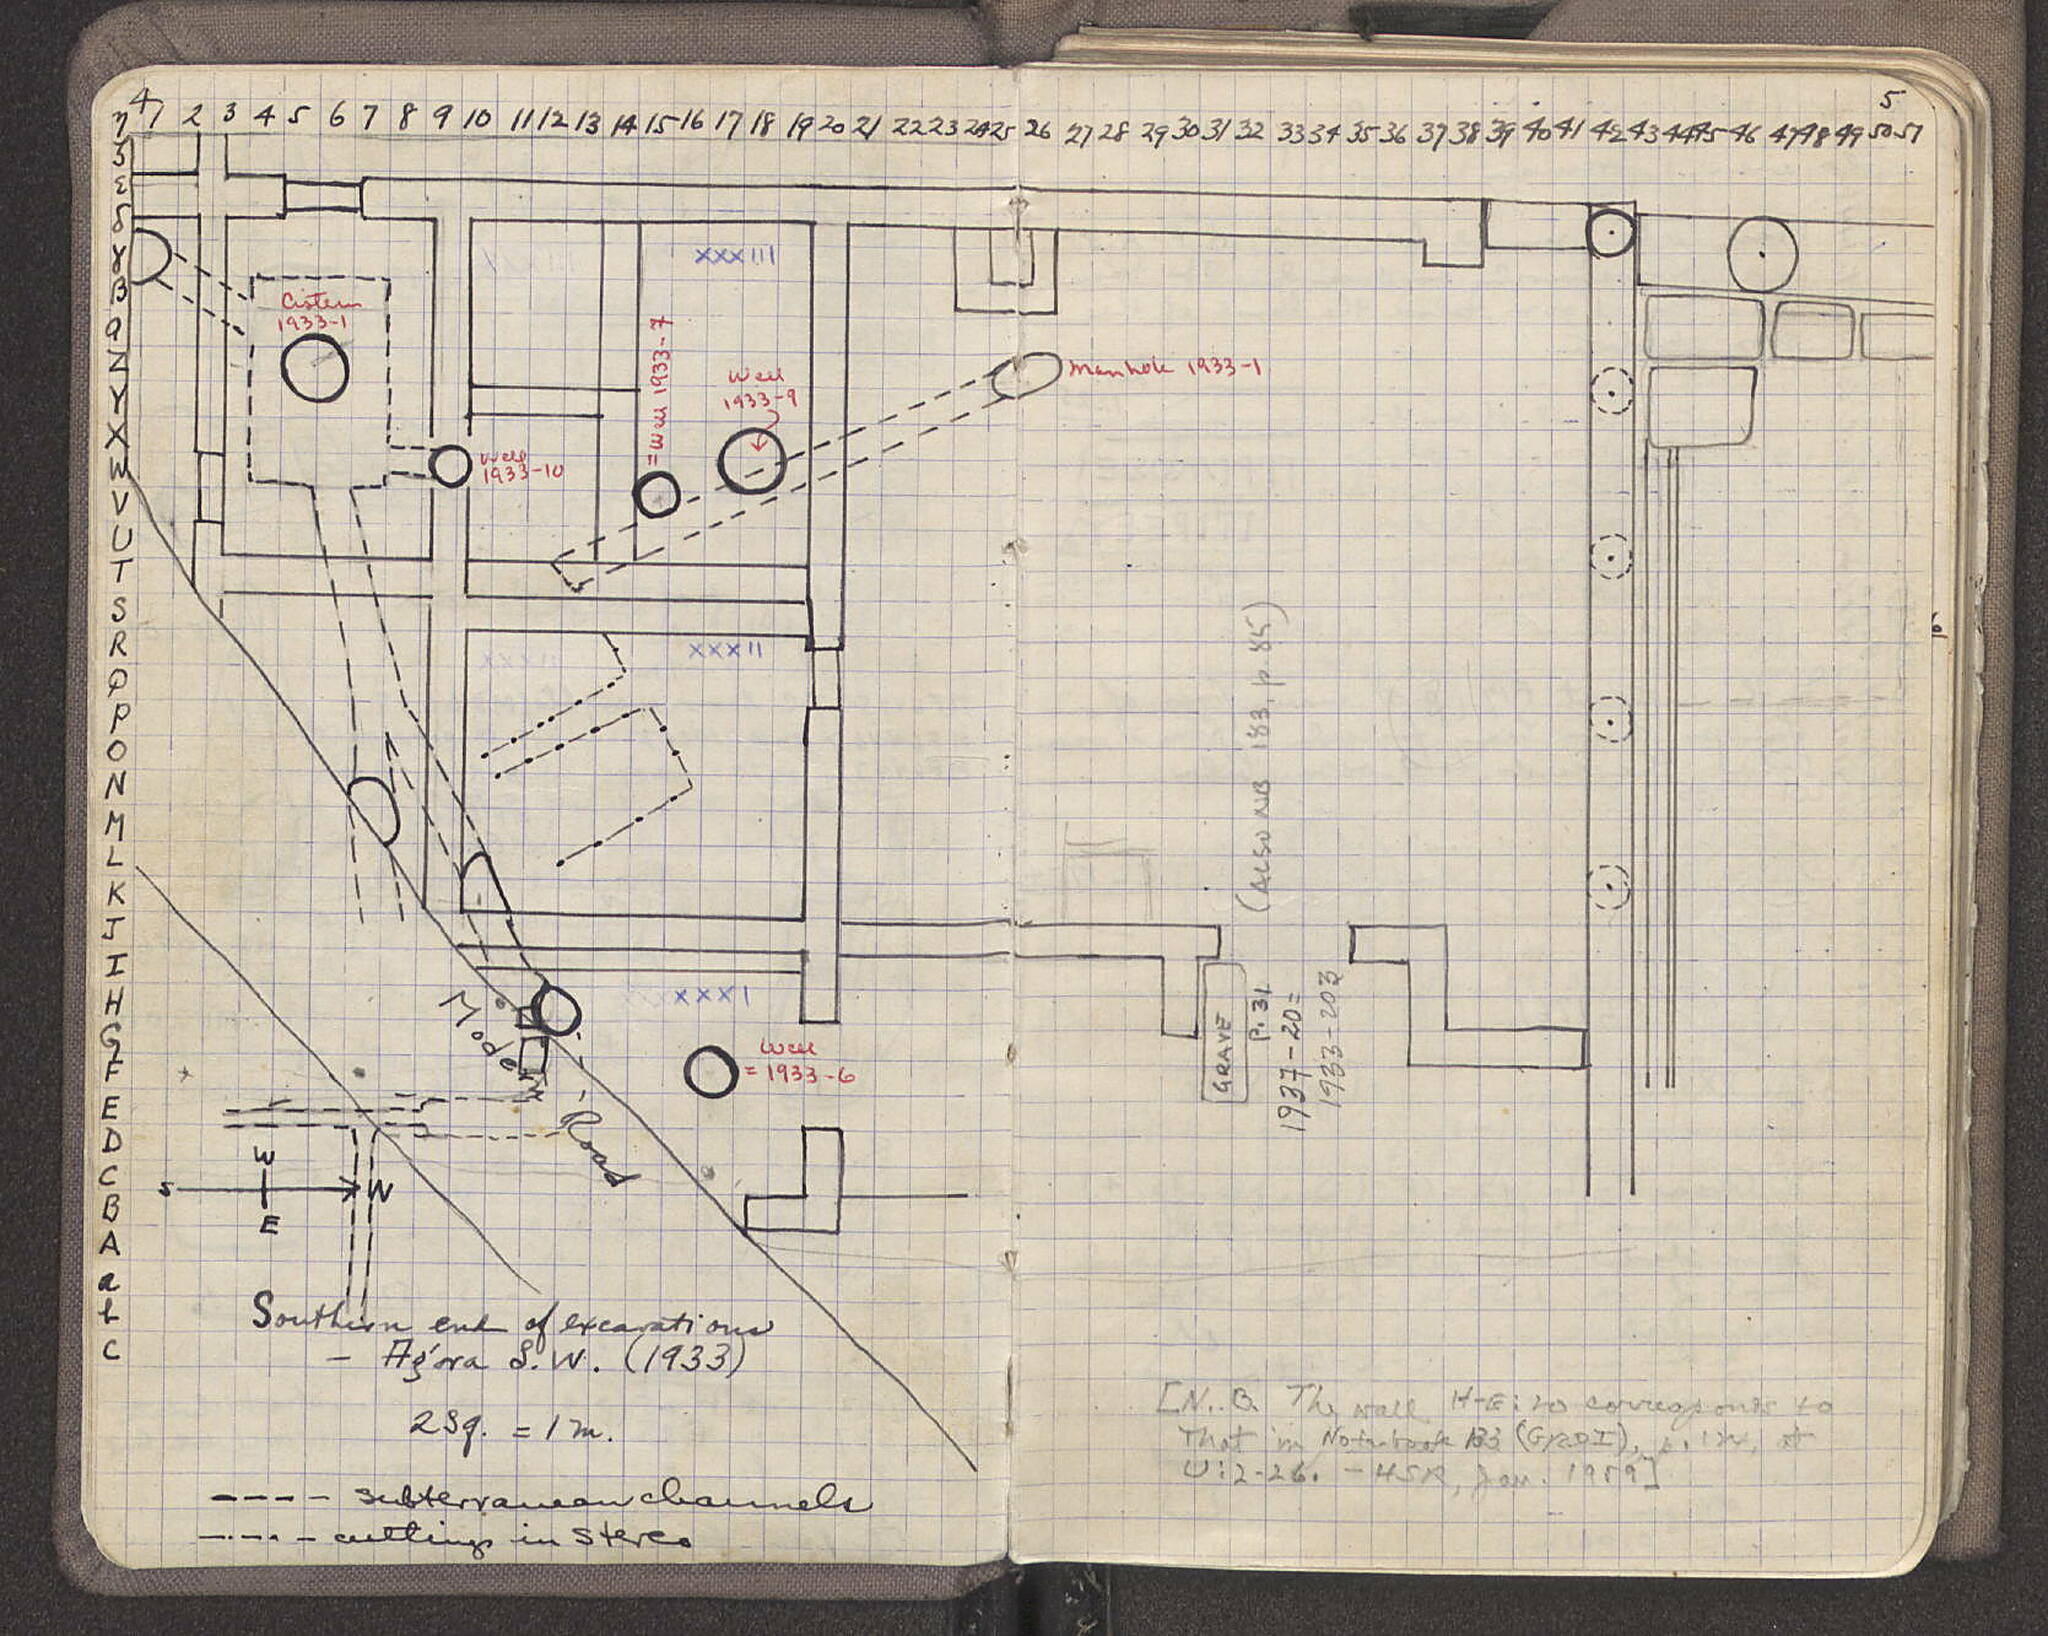 4
5
1 2 3 4 5 6 7 8 9 10 11 12 13 14 15 16 17 18 19 20 21 22 23 24 25 26 27 28 29 30 31 32 33 34 35 36 37 38 39 40 41 42 43 44 45 46 47 48 49 50 51
η
ζ
ε
δ
γ
β
α
Z
Y
X
W
V
U
T
S
R
Q
P
O
N
M
L
K
J
I
H
G
F
E
D
C
B
A
a
b
c
XXXIII
Cistern
1933-1
= Well 1933-7
Well
1933-9
Manhole 1933-1
Well
1933-10
XXXII
(ALSO NB 183, p 85)
XXXI
Modern Road
Well
= 1933-6
GRAVE
P. 31
1937-20=
1933-203
W
S N
E
Southern end of excavations
- Agora S.W. (1933)
2 sq. = 1 m.
---- subterranean channels
-··-·- cuttings in stereo
[N.B. The wall H-E:20 corresponds to
that in Notebook 183 (Grid I), p. at
U:2-26. - HSR, Jan. 1959]